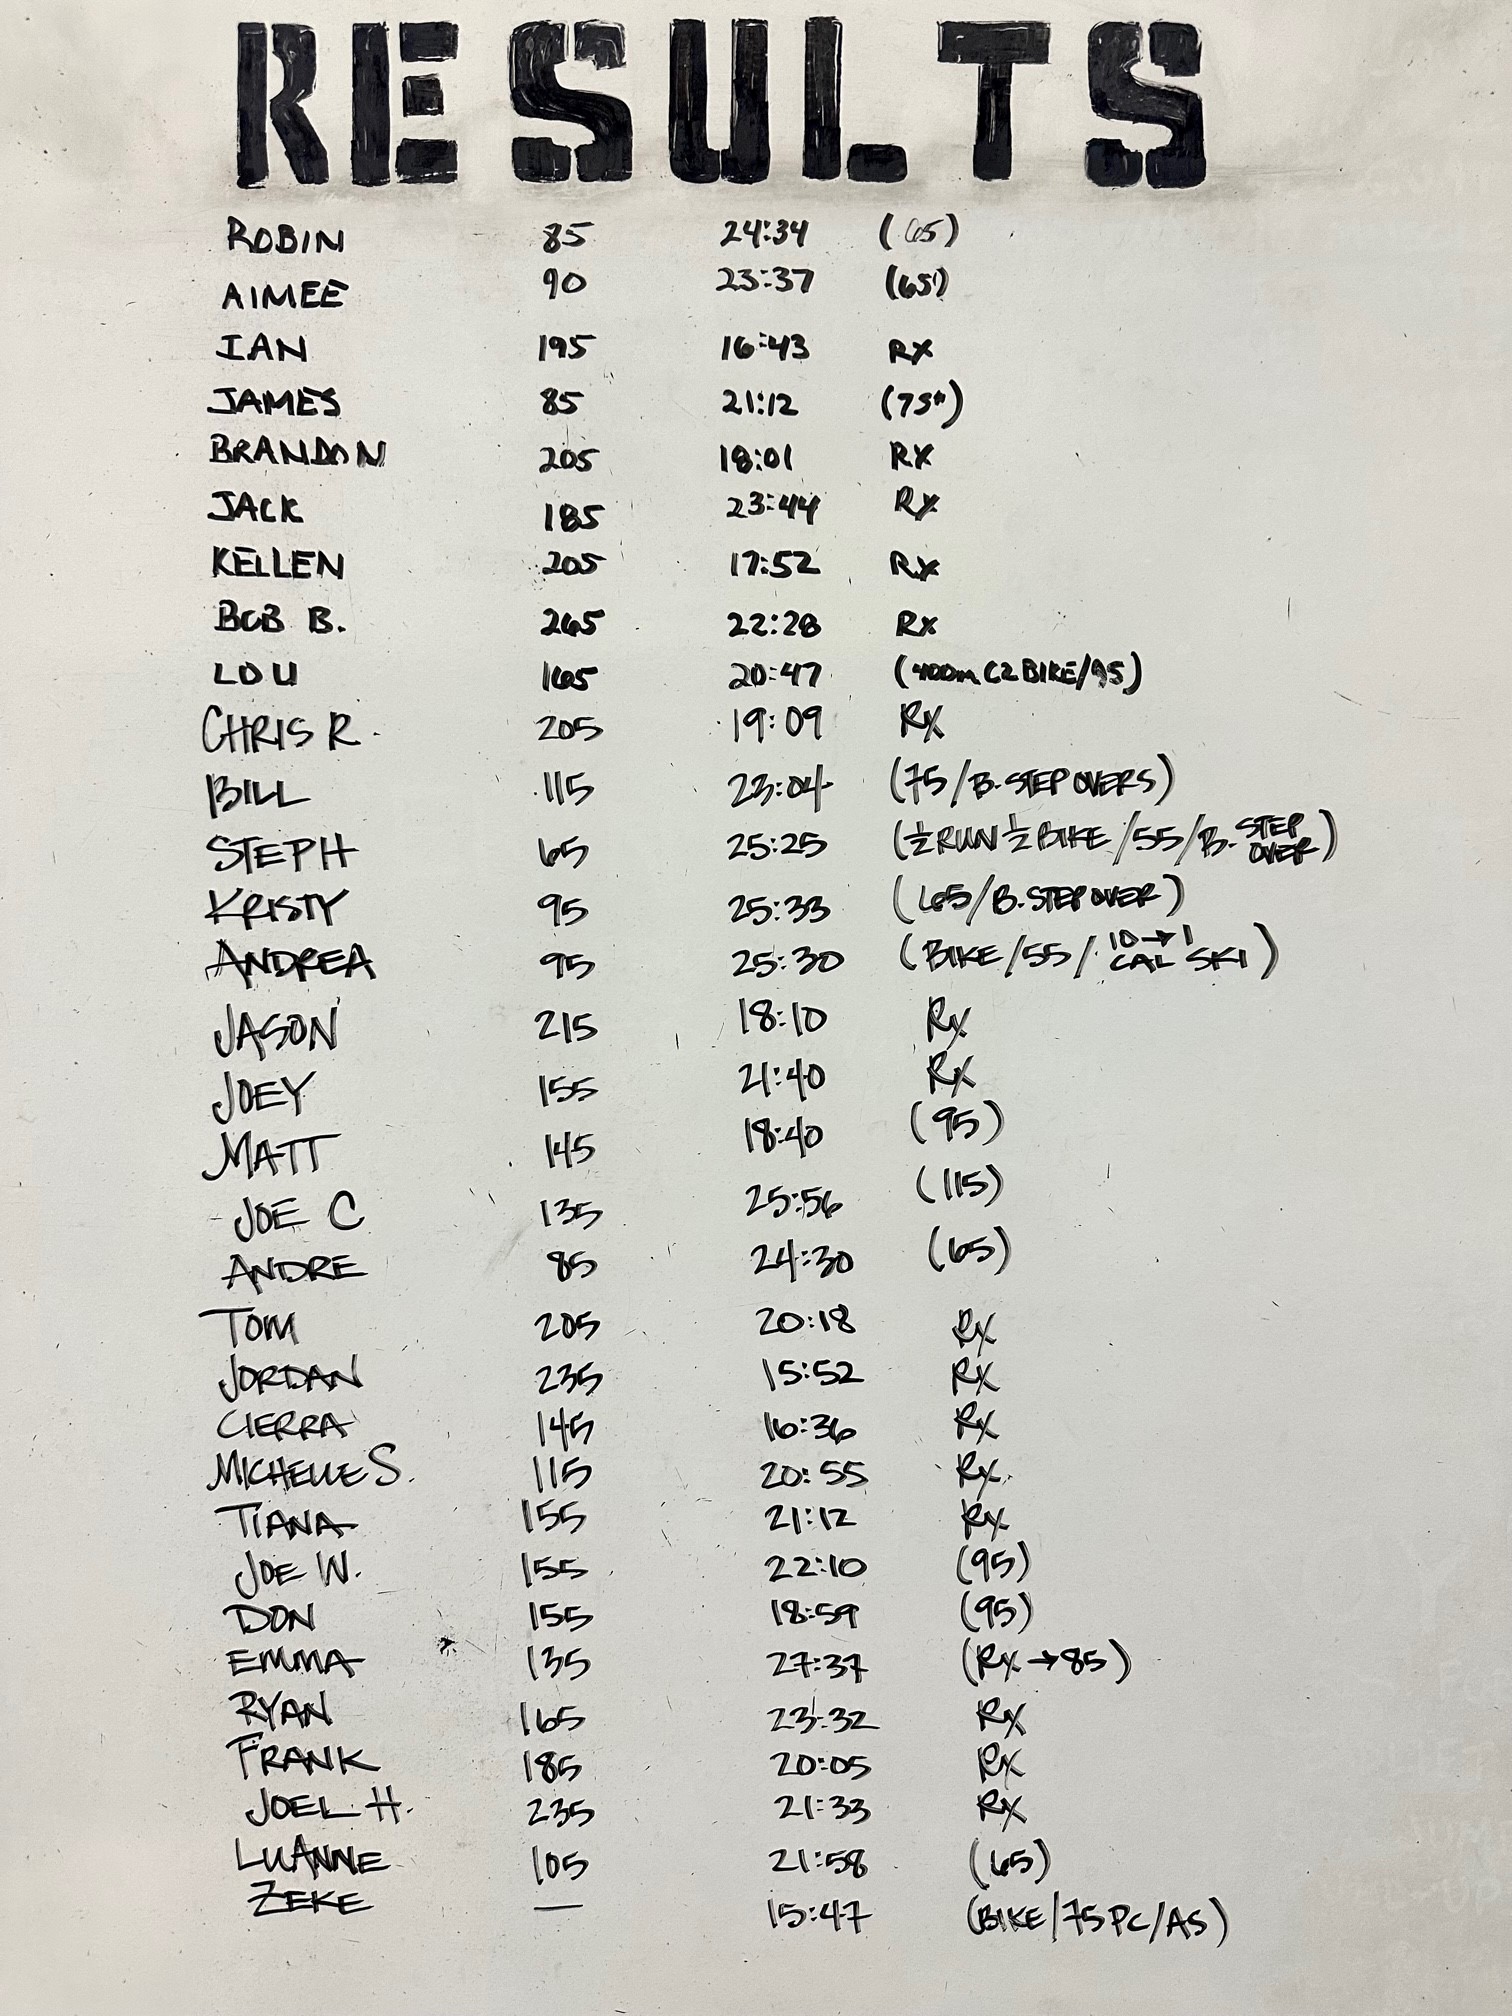 RESULTS
ROBIN 85 24:34 (65)
AIMEE 90 23:37 (65)
IAN 195 16:43 RX
JAMES 85 21:12 (75#)
BRANDON 205 18:01 RX
JACK 185 23:44 RX
KELLEN 205 17:52 RX
BOB B. 265 22:28 RX
LOU 165 20:47 (400m C2 BIKE/95)
CHRIS R. 205 19:09 RX
BILL 115 23:04 (75/B. STEP OVERS)
STEPH 65 25:25 (½ RUN ½ BIKE/55/B. STEP OVER)
KRISTY 95 25:33 (65/B. STEP OVER)
ANDREA 95 25:30 (BIKE/55/10→1 CAL SKI)
JASON 215 18:10 RX
JOEY 155 21:40 RX
MATT 145 18:40 (95)
JOE C 135 25:56 (115)
ANDRE 85 24:30 (65)
TOM 205 20:18 RX
JORDAN 235 15:52 RX
CIERRA 145 16:36 RX
MICHELLE S. 115 20:55 RX
TIANA 155 21:12 RX
JOE W. 155 22:10 (95)
DON 155 18:59 (95)
EMMA 135 27:37 (RX→85)
RYAN 165 23:32 RX
FRANK 185 20:05 RX
JOEL H. 235 21:33 RX
LUANNE 105 21:58 (65)
ZEKE — 15:47 (BIKE/75 PC/AS)